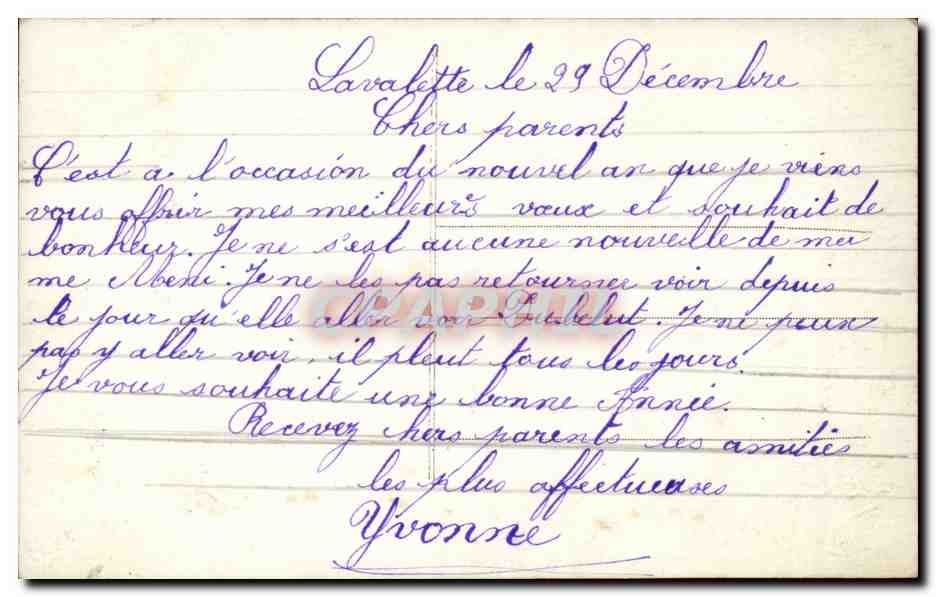 Lavalette le 29 Décembre
Chers parents
C'est a l'occasion du nouvel an que je viens
vous offrir mes meilleurs vœux et souhait de
bonheur. Je ne s'est aucune nouvelle de ma
me Meni. Je ne les pas retournee voir depuis
le jour qu'elle aller voir
. Je ne peux
pas y aller voir, il pleut tous les jours.
Je vous souhaite une bonne Année.
Recevez chers parents les amitiés
les plus affectueuses
Yvonne